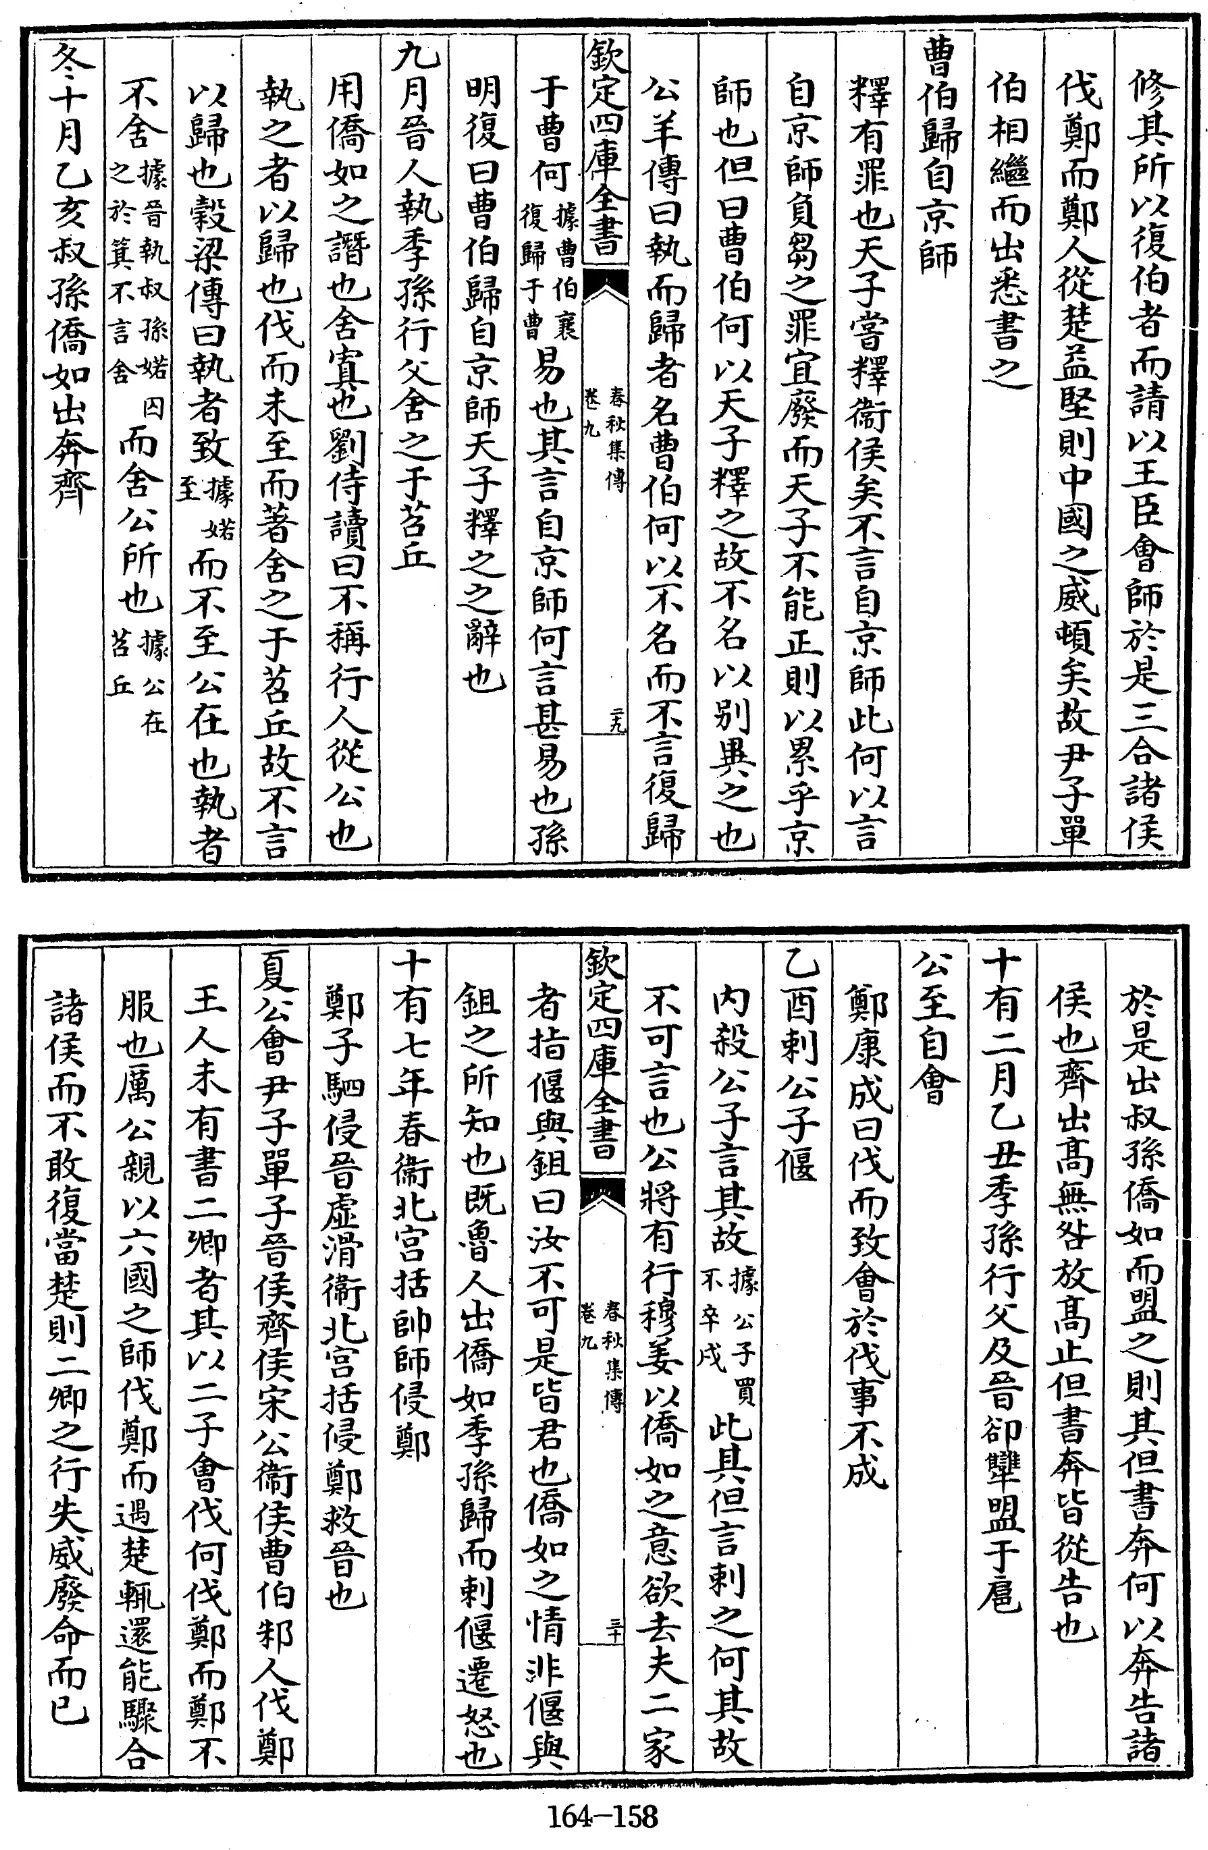 修其所以復伯者而請以王臣會師於是三合諸侯
伐鄭而鄭人從楚益堅則中國之威頓矣故尹子單
伯相繼而出悉書之
曹伯歸自京師
釋有罪也天子嘗釋衞侯矣不言自京師此何以言
自京師負芻之罪宜廢而天子不能正則以累乎京
師也但曰曹伯何以天子釋之故不名以别異之也
公羊傳曰執而歸者名曹伯何以不名而不言復歸
欽定四庫全書
春秋集傳
卷九
二九
于曹何據曹伯襄復歸于曹易也其言自京師何言甚易也孫
明復曰曹伯歸自京師天子釋之之辭也
九月晉人執季孫行父舍之于苕丘
用僑如之譖也舍寘也劉侍讀曰不稱行人從公也
執之者以歸也伐而未至而著舍之于苕丘故不言
以歸也穀梁傳曰執者致據婼至而不至公在也執者
不舍據晉執叔孫婼囚之於箕不言舍而舍公所也據公在苕丘
冬十月乙亥叔孫僑如出奔齊
於是出叔孫僑如而盟之則其但書奔何以奔告諸
侯也齊出髙無咎放髙止但書奔皆從告也
十有二月乙丑季孫行父及晉卻犨盟于扈
公至自會
鄭康成曰伐而致會於伐事不成
乙酉刺公子偃
内殺公子言其故據公子買不卒戍此其但言刺之何其故
不可言也公將有行穆姜以僑如之意欲去夫二家
欽定四庫全書
春秋集傳
卷九
三十
者指偃與鉏曰汝不可是皆君也僑如之情非偃與
鉏之所知也既魯人出僑如季孫歸而刺偃遷怒也
十有七年春衞北宫括帥師侵鄭
鄭子駟侵晉虚滑衞北宫括侵鄭救晉也
夏公會尹子單子晉侯齊侯宋公衞侯曹伯邾人伐鄭
王人未有書二卿者其以二子會伐何伐鄭而鄭不
服也厲公親以六國之師伐鄭而遇楚輒還能驟合
諸侯而不敢復當楚則二卿之行失威廢命而已
164-158